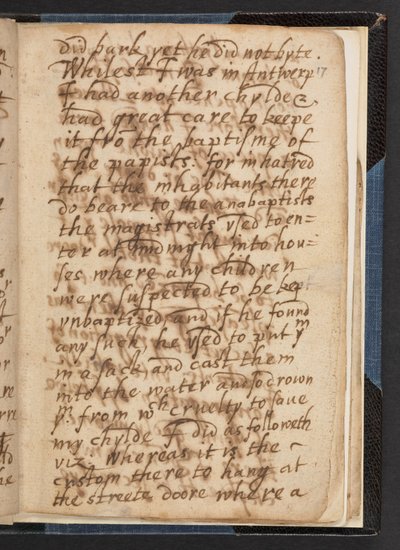 did bark yet he did not byte.
Whilest I was in Antwerp 17
I had another chylde &
had great care to keepe
it frō the baptisme of
the papists. for in hatred
that the inhabitants there
do beare to the anabaptists
the magistrats vsed to en=
ter at midnight into hou=
ses where any children
were suspected to be kept
vnbaptized and if he found
any such he vsed to put yᵐ
in a sack and cast them
into the water and so drown
yᵐ. from wᶜʰ cruelty to saue
my chylde I did as followeth
viz. Whereas it is the
custom there to hang at
the streete doore where a